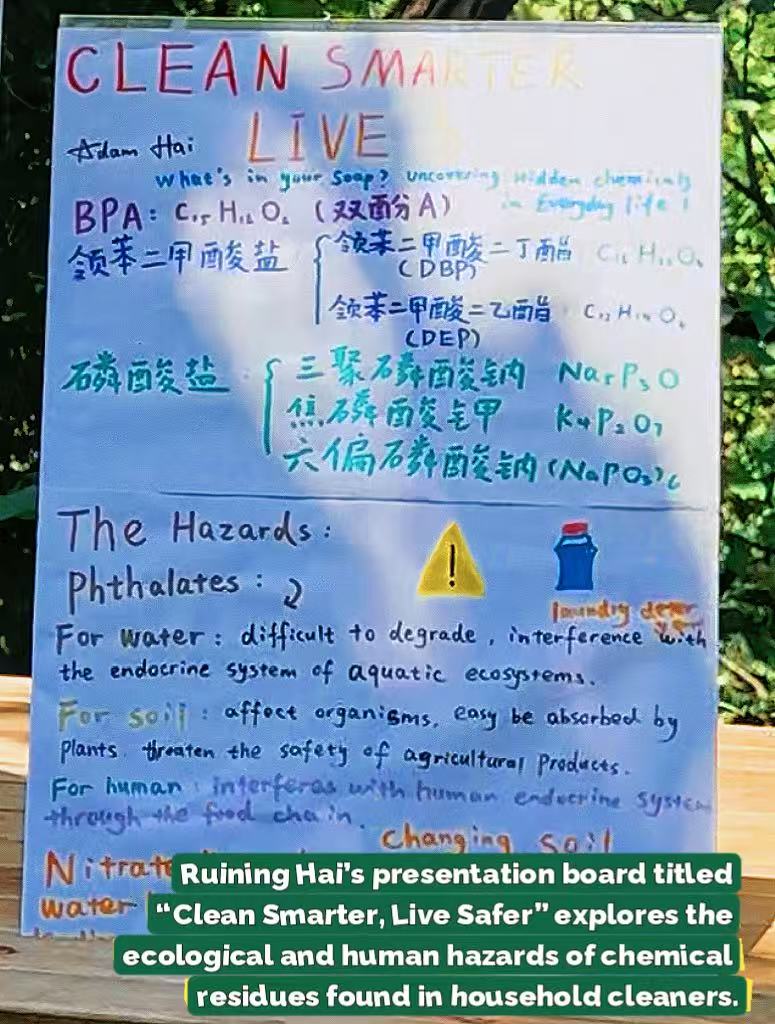 CLEAN SMARTER
LIVE
Adam Hai
What's in your Soap? Uncovering Hidden chemicals
in Everyday life!
BPA: C₁₅ H₁₆ O₂ (双酚A)
领苯二甲酸盐
领苯二甲酸二丁酯 C₁₆ H₂₂ O₄
(DBP)
领苯二甲酸二乙酯 C₁₂ H₁₄ O₄
(DEP)
磷酸盐
三聚磷酸钠 Na₅P₃O
焦磷酸钾 K₄P₂O₇
六偏磷酸钠 (NaPO₃)₆
The Hazards:
Phthalates:
laundry deter
For water: difficult to degrade, interference with
the endocrine system of aquatic ecosystems.
For soil: affect organisms, easy be absorbed by
plants. threaten the safety of agricultural products.
For human: interferes with human endocrine system
through the food chain.
Changing soil
Nitrate
water
Ruining Hai's presentation board titled
“Clean Smarter, Live Safer” explores the
ecological and human hazards of chemical
residues found in household cleaners.